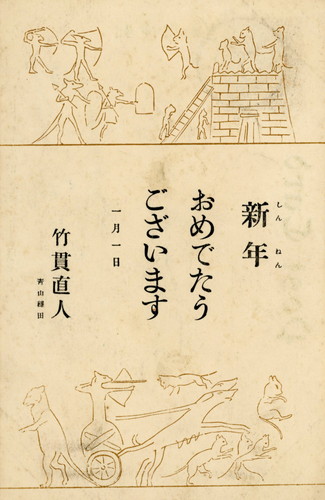 新年
しんねん
おめでたう
ございます
一月一日
竹貫直人
青山穏田